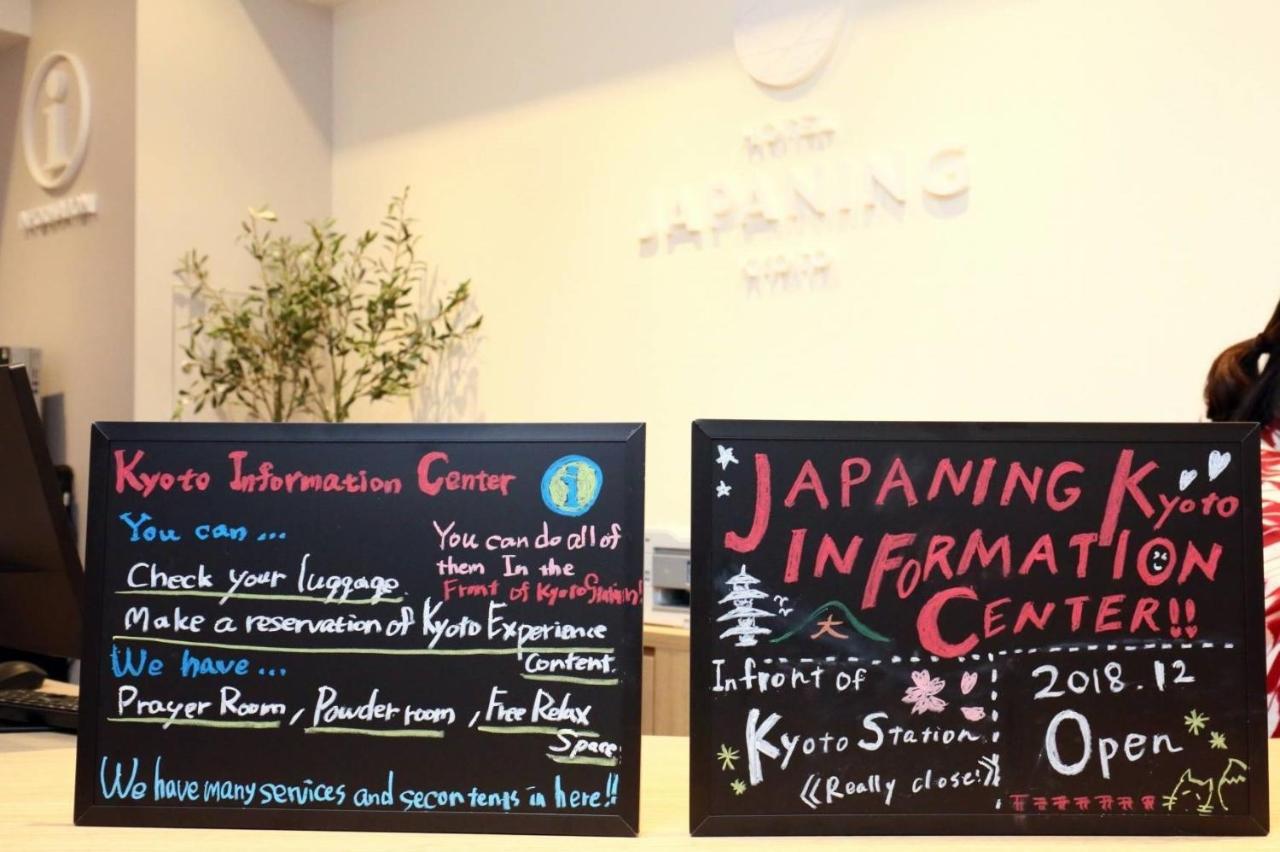 i
INFORMATION
HOTEL
JAPANING
KYOTO
Kyoto Information Center
i
You can...
You can do all of
them In the
Front of Kyoto Station!
Check your luggage.
Make a reservation of Kyoto Experience
Content.
We have...
Prayer Room, Powder room, Free Relax
Space
We have many services and secontents in here!!
JAPANING Kyoto
INFORMATION
CENTER!!
大
Infront of
Kyoto Station
《Really close!》
2018.12
Open